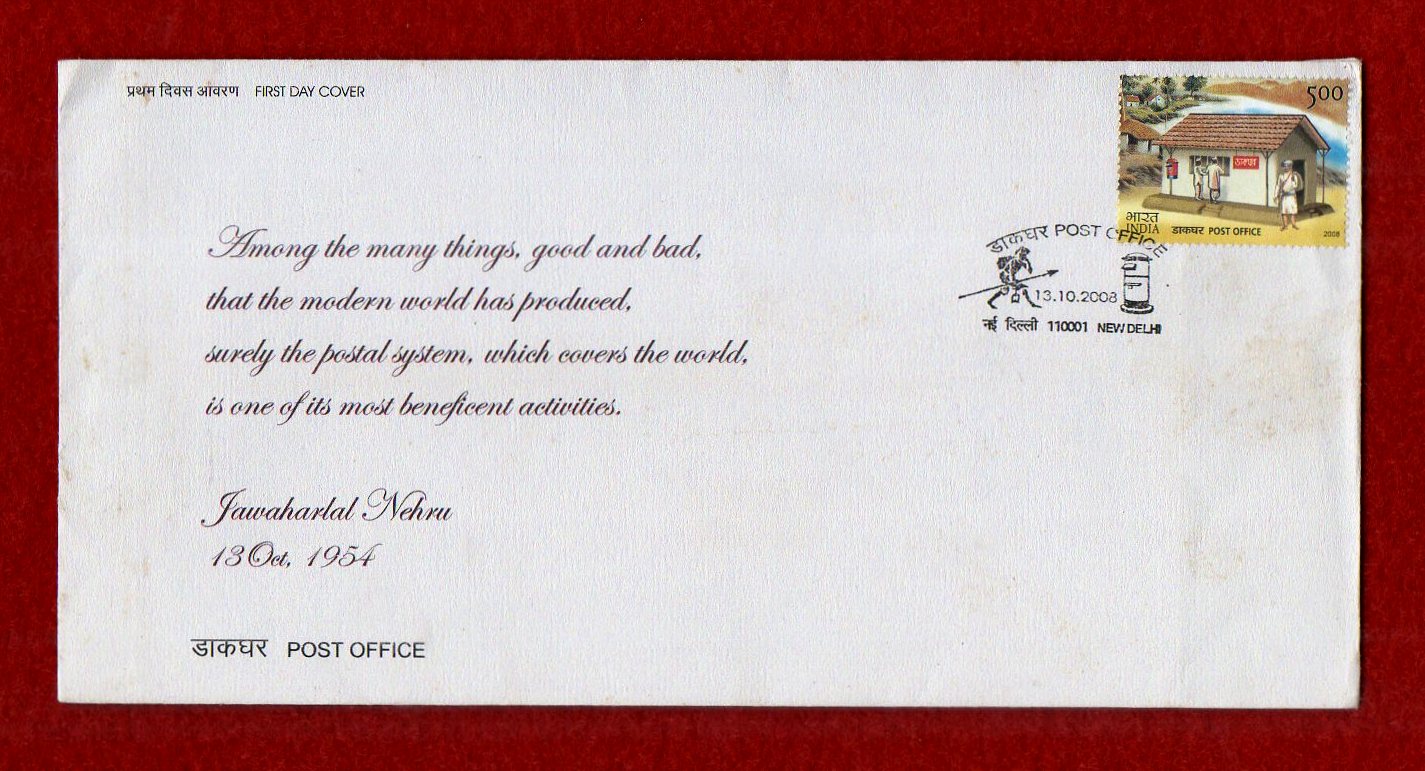 प्रथम दिवस आवरण FIRST DAY COVER
500
डाकघर
भारत
INDIA
डाकघर POST OFFICE
2008
डाकघर POST OFFICE
13.10.2008
नई दिल्ली 110001 NEW DELHI
Among the many things, good and bad,
that the modern world has produced,
surely the postal system, which covers the world,
is one of its most beneficent activities.
Jawaharlal Nehru
13 Oct, 1954
डाकघर POST OFFICE